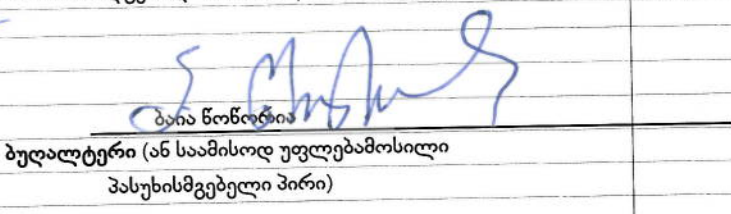 ბაია წოწორია
ბუღალტერი (ან საამისოდ უფლებამოსილი
პასუხისმგებელი პირი)